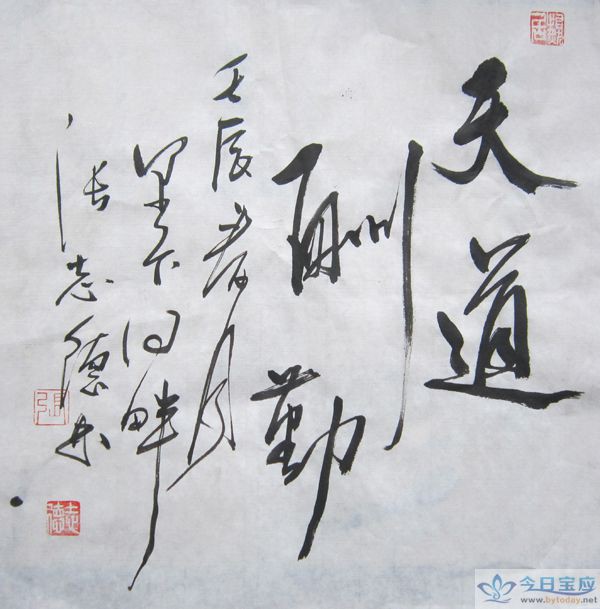 天道
酬勤
壬辰春月
里下河畔
张志德书
張
志德
今日宝应
www.bytoday.net